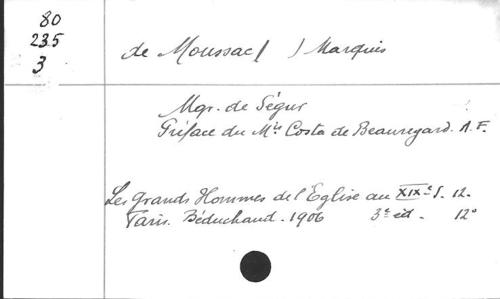 80
235
3
de Moussac ( ) Marquis
Mgr. de Ségur
Préface du Mis Costa de Beauregard. A. F.
Les Grands Hommes de l'Eglise au XIXe S. 12.
Paris. Béduchaud. 1906 3e éd. 12°